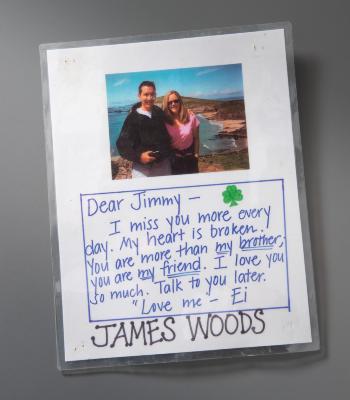 Dear Jimmy –
I miss you more every
day. My heart is broken.
You are more than my brother,
you are my friend. I love you
so much. Talk to you later.
"Love me – Ei
JAMES WOODS